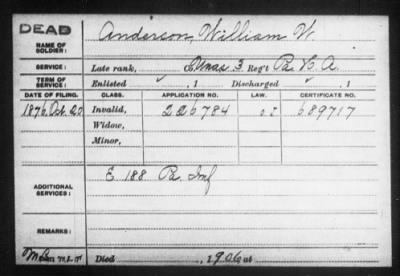 DEAD
NAME OF SOLDIER:
Anderson, William V.
SERVICE:
Late rank, Unas. 3 Reg't Pa. H. A.
TERM OF SERVICE:
Enlisted , 1 Discharged , 1
DATE OF FILING. CLASS. APPLICATION NO. LAW. CERTIFICATE NO.
1876, Oct. 20 Invalid, 226784 689717
Widow,
Minor,
ADDITIONAL SERVICES:
E 188 Pa. Inf
REMARKS:
Died , 1906 at